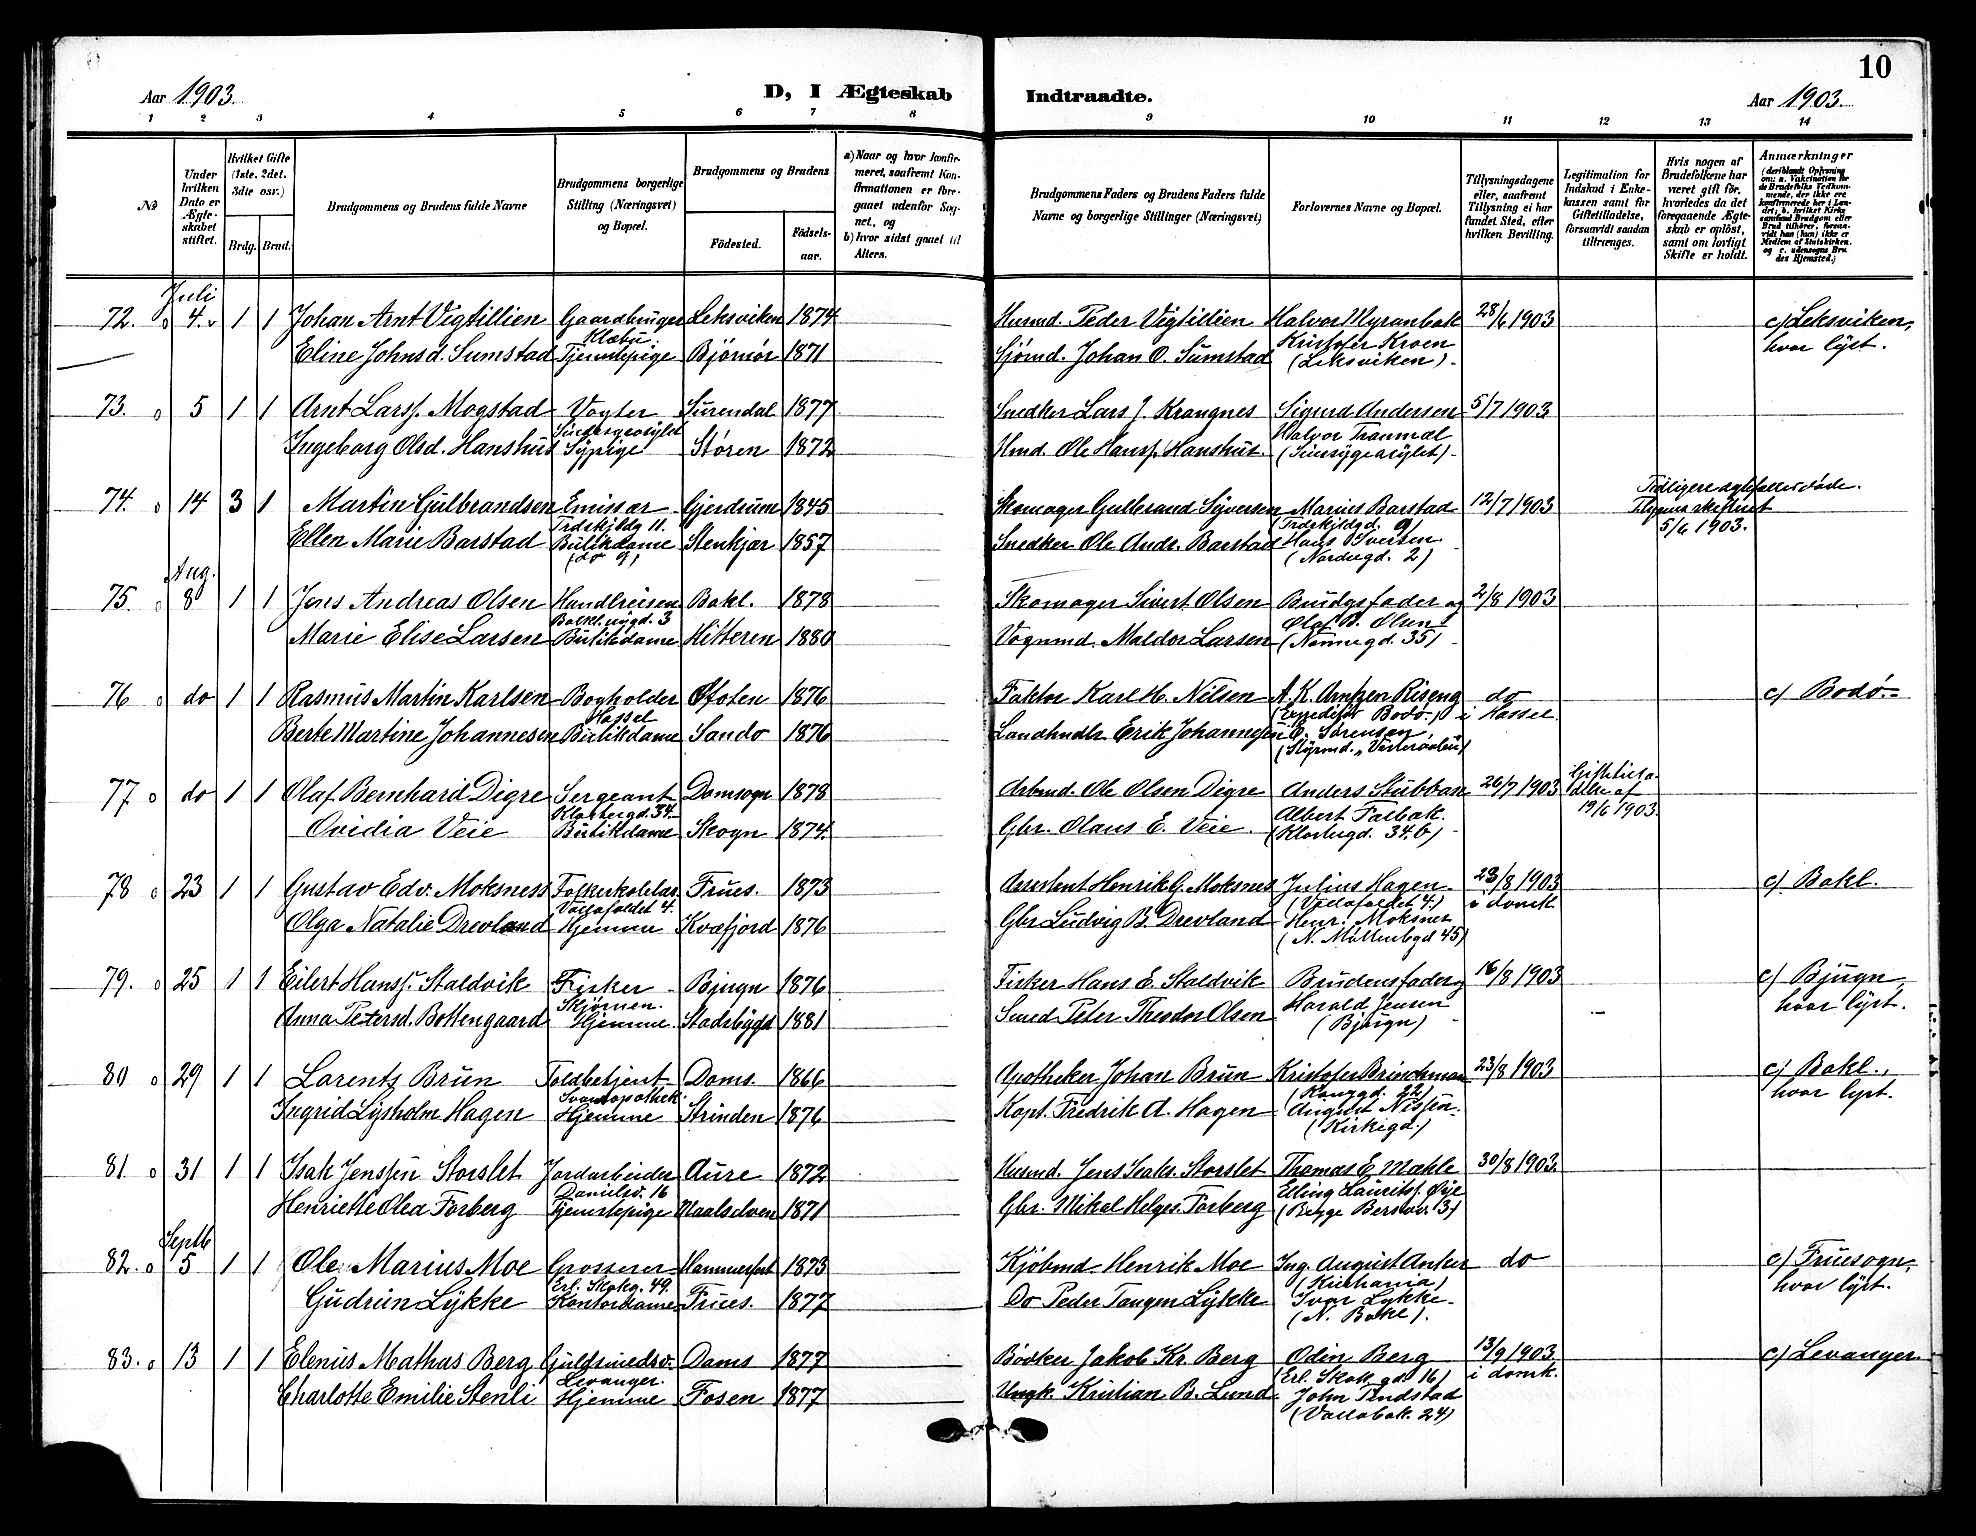 10
Aar 1903.
D, I Ægteskab Indtraadte.
Aar 1903.
1 2 3 4 5 6 7 8 9 10 11 12 13 14
No
Under hvilken Dato er Ægteskabet stiftet.
Hvilket Gifte (1ste, 2det, 3die osv.)
Brdg. Brud.
Brudgommens og Brudens fulde Navne
Brudgommens borgerlige Stilling (Næringsvei) og Bopæl.
Brudgommens og Brudens
Fødested.
Fødselsaar.
a) Naar og hvor konfirmeret, saafremt Konfirmationen er foregaaet udenfor Sognet, og
b) hvor sidst gaaet til Alters.
Brudgommens Faders og Brudens Faders fulde Navne og borgerlige Stillinger (Næringsvei)
Forlovernes Navne og Bopæl.
Tillysningsdagene eller, saafremt Tillysning ei har fundet Sted, efter hvilken Bevilling.
Legitimation for Indskud i Enkekassen samt for Giftetilladelse, forsaavidt saadan tiltrænges.
Hvis nogen af Brudefolkene har været gift før, hvorledes da det foregaaende Ægteskab er opløst, samt om lovligt Skifte er holdt.
Anmærkninger
Juli
72. 4. 1 1 Johan Arnt Vigtillien Gaardbruger Leksviken 1874 Husmd. Peder Vigtillien Halvor Myranbak 28/6 1903 c) Leksviken,
Klæbu. Kristofer Kroen hvor lyst.
Eline Johnsd. Sumstad Tjenestepige Bjørnør 1871 Sjømd. Johan O. Sumstad (Leksviken).
73. 5 1 1 Arnt Larss. Mogstad Vogter Surendal 1877 Snedker Lars J. Krangnes Sigurd Andersen 5/7 1903
Sindssygeasylet Halvor Tranmæl
Ingeborg Olsd. Hanshus Sypige Støren 1872 Hmd. Ole Hanss. Hanshus. (Sinsygeasylet)
74. 14 3 1 Martin Gulbrandsen Emissær Gjerdrum 1845 Skomager Gulbrand Syversen Marius Barstad 12/7 1903 Tidligere ægtefæller døde.
5/6 1903.
Ellen Marie Barstad Butikdame Stenkjær 1857 Snedker Ole Andr. Barstad Hans Iversen
(do 9) (Nordregd. 2)
Aug.
75. 8 1 1 Jens Andreas Olsen Handlreisen. Bakl. 1878 Skomager Sivert Olsen Brudgsfader og 2/8 1903
Bakl. nygd. 3 Olaf B. Olsen
Marie Elise Larsen Butikdame Hitteren 1880 Vognmd. Maldor Larsen (Nonnegd. 35)
76 do 1 1 Rasmus Martin Karlsen Bogholder Ofoten 1876 Faktor Karl H. Nilsen A. K. Arntzen Riseng do c) Bodø.
Hassel (Expeditør Bodø) i Hassel
Berte Martine Johannesen Butikdame Sando 1876 Landhndlr. Erik Johannesen O. Sørensen,
(Styrmd. „Vesteraalen")
77 do 1 1 Olaf Bernhard Digre Sergeant Domsogn 1878 Arbmd. Ole Olsen Digre Anders Stubban 26/7 1903 Giftetilla-
delse af
19/6 1903.
Klostergd. 34. Albert Falbak.
Ovidia Veie Butikdame Skogn 1874. Gbr. Olaus E. Veie. (Klostergd. 34. b)
78 23 1 1 Gustav Edv. Moksness Folkeskolelær Frues. 1873 Assistent Henrik G. Moksnes Julius Hagen 23/8 1903 c) Bakl.
Vollafaldet 4. (Vollafaldet 4.) i domk.
Olga Natalie Drevland Hjemme Kvæfjord 1876 Gbr. Ludvig B. Drevland Henr. Moksnes
(N. Møllenbgd 45)
79. 25 1 1 Eilert Hanss. Staldvik Fisker Bjugn 1876 Fisker Hans E. Staldvik Brudensfader og 16/8 1903 c) Bjugn,
Skjørnen. Harald Jensen hvor lyst.
Anna Petersd. Bottengaard Hjemme Stadsbygd 1881 Smed Peter Theodor Olsen (Bjugn)
80 29 1 1 Lorentz Brun Toldbetjent Doms. 1866 Apotheker Johan Brun Kristofer Brinchman 23/8 1903 c) Bakl.,
Svaneapothek. (Konggd. 22) hvor lyst.
Ingrid Lysholm Hagen Hjemme Strinden 1876 Kapt. Fredrik A. Hagen August Nissen.
(Kirkegd.)
81. 31 1 1 Isak Jenssen Storslet Jordarbeider Aure 1872 Husmd. Jens Isaks. Storslet Thomas E Mæhle 30/8 1903.
Danielsv. 16 Elling Lauritss. Øye
Henriette Olea Forberg Tjenestepige Maalselven 1871 Gbr. Mikal Helges. Forberg (Begge Bersvv. 3)
Septb
82. 5 1 1 Ole Marius Moe Grosserer Hammerfest 1873 Kjøbmd. Henrik Moe Ing. August Anker do c) Fruesogn,
Erl. Skakg. 49. (Kristiania) hvor lyst.
Gudrun Lykke Kontordame Frues. 1877 Do Peder Tangen Lykke Ivar Lykke.
(N. Bakl).
83. 13 1 1 Elenus Mathas Berg Guldsmedsv. Doms 1877 Bødker Jakob Kr. Berg Odin Berg 13/9 1903 c) Levanger.
Levanger. (Erl. Skakgd. 16) i domk.
Charlotte Emilie Stenli Hjemme Fosen 1877 Ungk. Kristian B. Lund John Tindstad
(Vollabak. 24)